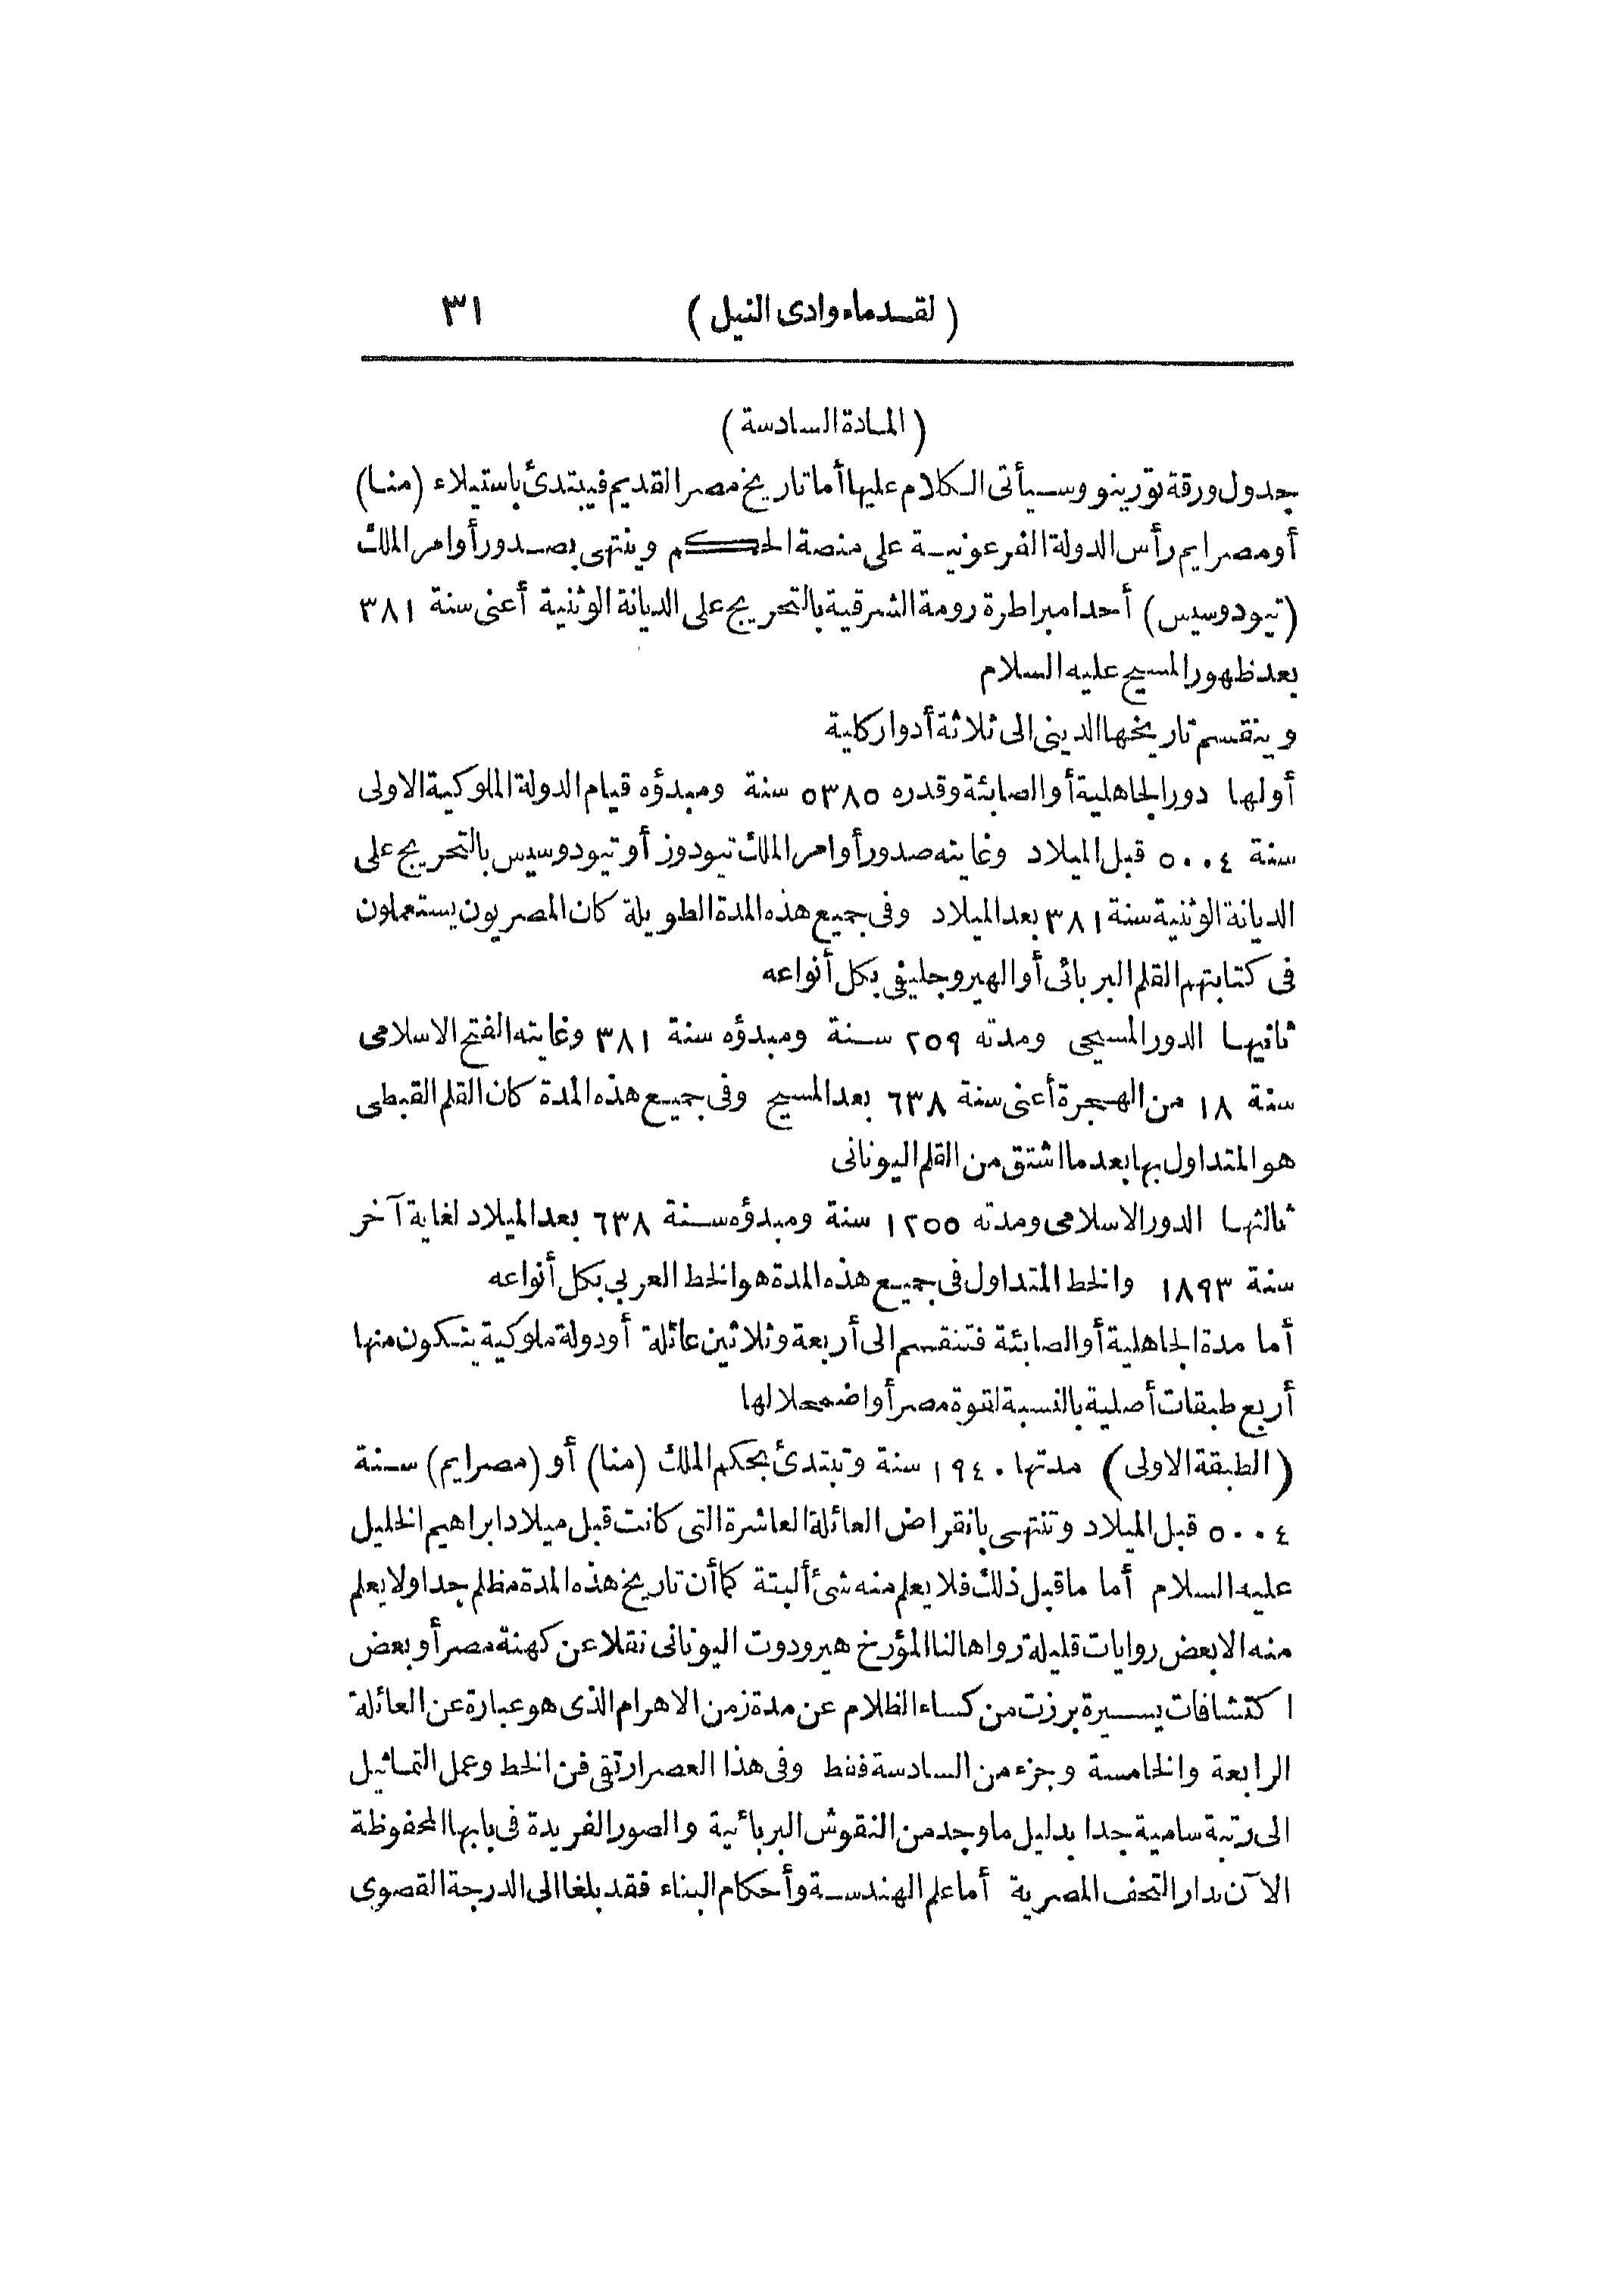 (لقدماء وادى النيل) ٣١
(المادة السادسة)
جدول ورقة تورينو وسيأتى الكلام عليها أما تاريخ مصر القديم فيبتدئ باستيلاء (منا)
أو مصرايم رأس الدولة الفرعونية على منصة الحكم وينتهى بصدور أوامر الملك
(تيودوسيس) أحد امبراطرة رومة الشرقية بالتحريج على الديانة الوثنية أعنى سنة ٣٨١
بعد ظهور المسيح عليه السلام
وينقسم تاريخها الدينى الى ثلاثة أدوار كلية
أولها دور الجاهلية أو الصابئة وقدره ٥٣٨٥ سنة ومبدؤه قيام الدولة الملوكية الاولى
سنة ٥٠٠٤ قبل الميلاد وغايته صدور أوامر الملك تيودوز أو تيودوسيس بالتحريج على
الديانة الوثنية سنة ٣٨١ بعد الميلاد وفى جميع هذه المدة الطويلة كان المصريون يستعملون
فى كتابتهم القلم البربائى أو الهيروجليفى بكل أنواعه
ثانيها الدور المسيحى ومدته ٢٥٩ سنة ومبدؤه سنة ٣٨١ وغايته الفتح الاسلامى
سنة ١٨ من الهجرة أعنى سنة ٦٣٨ بعد المسيح وفى جميع هذه المدة كان القلم القبطى
هو المتداول بها بعد ما اشتق من القلم اليونانى
ثالثها الدور الاسلامى ومدته ١٢٥٥ سنة ومبدؤه سنة ٦٣٨ بعد الميلاد لغاية آخر
سنة ١٨٩٣ والخط المتداول فى جميع هذه المدة هو الخط العربى بكل أنواعه
أما مدة الجاهلية أو الصابئة فتنقسم الى أربعة وثلاثين عائلة أو دولة ملوكية يتكون منها
أربع طبقات أصلية بالنسبة لقوة مصر أو اضمحلالها
(الطبقة الاولى) مدتها ١٩٤٠ سنة وتبتدئ بحكم الملك (منا) أو (مصرايم) سنة
٥٠٠٤ قبل الميلاد وتنتهى بانقراض العائلة العاشرة التى كانت قبل ميلاد ابراهيم الخليل
عليه السلام أما ما قبل ذلك فلا يعلم منه شئ ألبتة كما أن تاريخ هذه المدة مظلم جدا ولا يعلم
منه الا بعض روايات قليلة رواها لنا المؤرخ هيرودوت اليونانى نقلا عن كهنة مصر أو بعض
اكتشافات يسيرة برزت من كساء الظلام عن مدة زمن الاهرام الذى هو عبارة عن العائلة
الرابعة والخامسة وجزء من السادسة فقط وفى هذا العصر ارتقى فن الخط وعمل التماثيل
الى رتبة سامية جدا بدليل ما وجد من النقوش البربائية والصور الفريدة فى بابها المحفوظة
الآن بدار التحف المصرية أما علم الهندسة وأحكام البناء فقد بلغا الى الدرجة القصوى